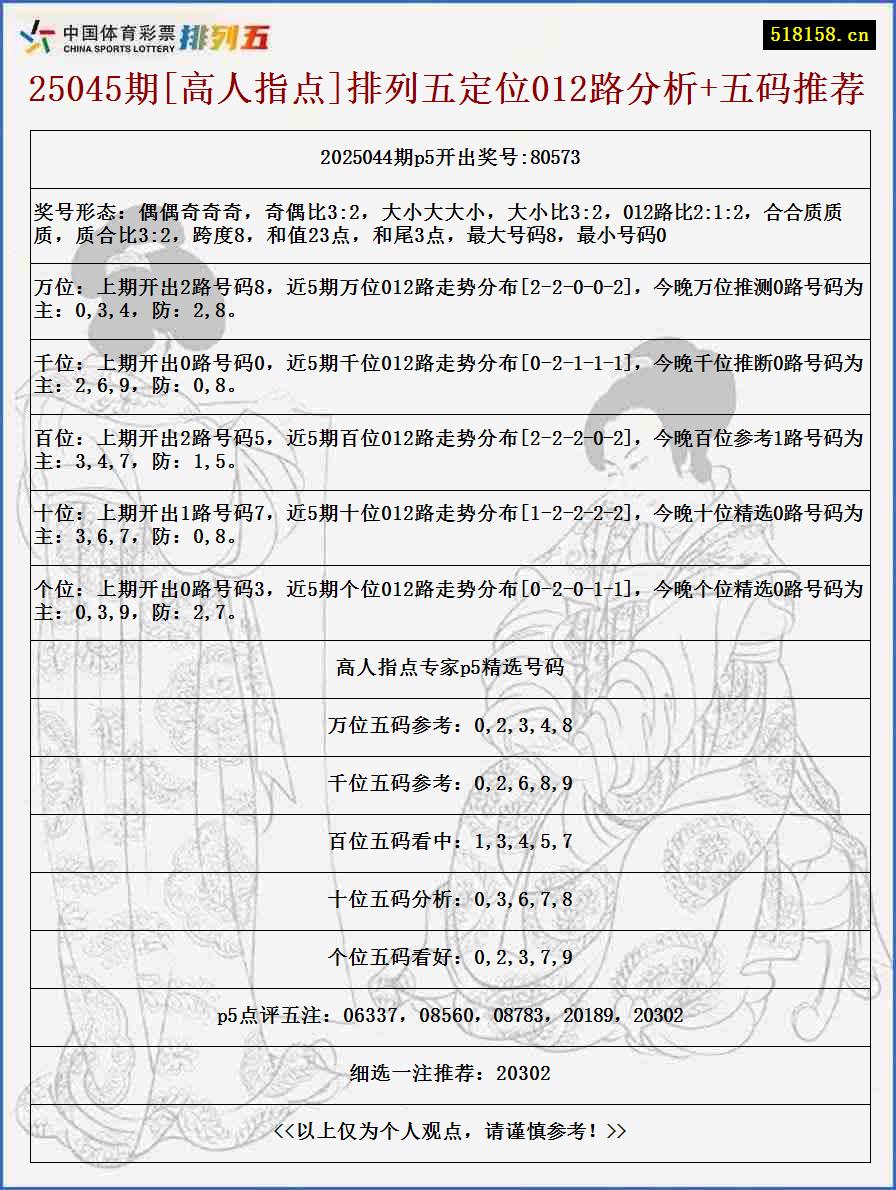 中国体育彩票
CHINA SPORTS LOTTERY
排列五
518158.cn
25045期[高人指点]排列五定位012路分析+五码推荐
2025044期p5开出奖号:80573
奖号形态：偶偶奇奇奇，奇偶比3:2，大小大大小，大小比3:2，012路比2:1:2，合合质质
质，质合比3:2，跨度8，和值23点，和尾3点，最大号码8，最小号码0
万位：上期开出2路号码8，近5期万位012路走势分布[2-2-0-0-2]，今晚万位推测0路号码为
主：0,3,4，防：2,8。
千位：上期开出0路号码0，近5期千位012路走势分布[0-2-1-1-1]，今晚千位推断0路号码为
主：2,6,9，防：0,8。
百位：上期开出2路号码5，近5期百位012路走势分布[2-2-2-0-2]，今晚百位参考1路号码为
主：3,4,7，防：1,5。
十位：上期开出1路号码7，近5期十位012路走势分布[1-2-2-2-2]，今晚十位精选0路号码为
主：3,6,7，防：0,8。
个位：上期开出0路号码3，近5期个位012路走势分布[0-2-0-1-1]，今晚个位精选0路号码为
主：0,3,9，防：2,7。
高人指点专家p5精选号码
万位五码参考：0,2,3,4,8
千位五码参考：0,2,6,8,9
百位五码看中：1,3,4,5,7
十位五码分析：0,3,6,7,8
个位五码看好：0,2,3,7,9
p5点评五注：06337，08560，08783，20189，20302
细选一注推荐：20302
<<以上仅为个人观点，请谨慎参考！>>